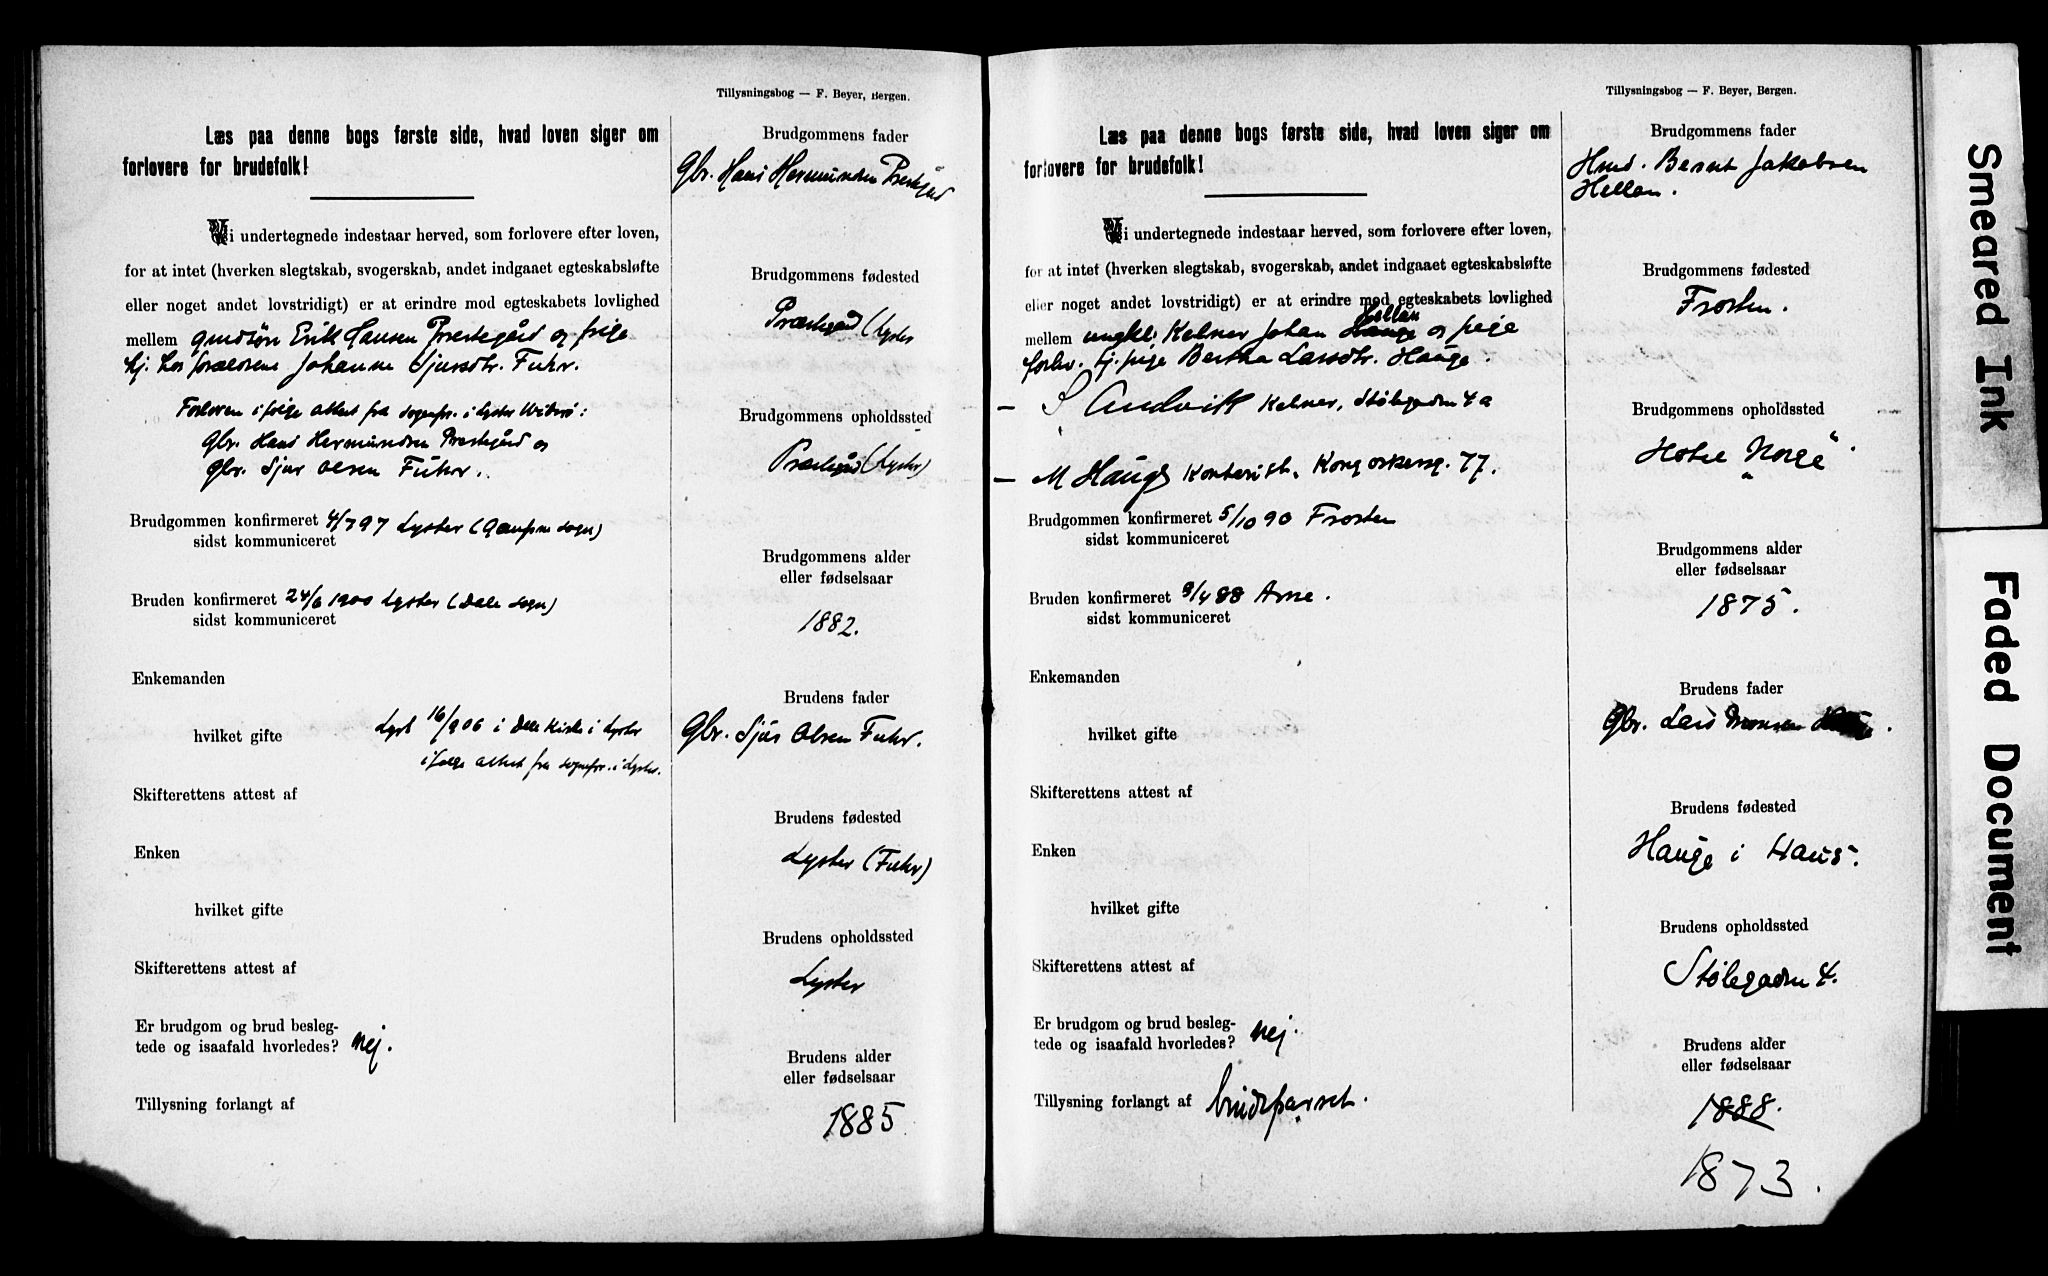 Tillysningsbog — F. Beyer, Bergen.
Læs paa denne bogs første side, hvad loven siger om
forlovere for brudefolk!
Vi undertegnede indestaar herved, som forlovere efter loven,
for at intet (hverken slegtskab, svogerskab, andet indgaaet egteskabsløfte
eller noget andet lovstridigt) er at erindre mod egteskabets lovlighed
mellem gmdsøn Erik Hansen Prestegård og pige
hj. hos forældrene Johanne Sjursdtr. Fuhr.
Forlovere ifølge attest fra sognepr. i Lyster:
Gbr. Hans Hermundsen Prestegård og
Gbr. Sjur Olsen Fuhr.
Brudgommen konfirmeret 4/7 97 Lyster (Gaupne sogn)
sidst kommuniceret
Bruden konfirmeret 24/6 1900 Lyster (Dale sogn)
sidst kommuniceret
Enkemanden
hvilket gifte
Lyst 16/9 06 i Dale Kirke i Lyster
ifølge attest fra sognepr. i Lyster.
Skifterettens attest af
Enken
hvilket gifte
Skifterettens attest af
Er brudgom og brud besleg-
tede og isaafald hvorledes? nej.
Tillysning forlangt af
Brudgommens fader
Gbr. Hans Hermundsen Prestegård
Brudgommens fødested
Præstegård (Lyster
Brudgommens opholdssted
Præstegård (Lyster)
Brudgommens alder
eller fødselsaar
1882.
Brudens fader
Gbr. Sjur Olsen Fuhr.
Brudens fødested
Lyster (Fuhr)
Brudens opholdssted
Lyster
Brudens alder
eller fødselsaar
1885
Tillysningsbog — F. Beyer, Bergen.
Læs paa denne bogs første side, hvad loven siger om
forlovere for brudefolk!
Vi undertegnede indestaar herved, som forlovere efter loven,
for at intet (hverken slegtskab, svogerskab, andet indgaaet egteskabsløfte
eller noget andet lovstridigt) er at erindre mod egteskabets lovlighed
Hellan
mellem ungkl. Kelner Johan Hauge og pige
forhv. tj. pige Bertha Larsdtr. Hauge.
— S Andvik Kelner, Stølegaden 4a
— M Hauge Kontorist, Kong oskarsg. 77.
Brudgommen konfirmeret 5/10 90 Frosten
sidst kommuniceret
Bruden konfirmeret 8/4 88 Arne.
sidst kommuniceret
Enkemanden
hvilket gifte
Skifterettens attest af
Enken
hvilket gifte
Skifterettens attest af
Er brudgom og brud besleg-
tede og isaafald hvorledes? nej.
Tillysning forlangt af brudeparret.
Brudgommens fader
Hmd. Bernt Jakobsen
Hellan.
Brudgommens fødested
Frosten.
Brudgommens opholdssted
Hotel "Norge".
Brudgommens alder
eller fødselsaar
1875.
Brudens fader
Gbr. Lars Monsen
Brudens fødested
Hauge i Haus.
Brudens opholdssted
Stølegaden 4.
Brudens alder
eller fødselsaar
1888.
1873.
Smeared Ink
Faded Document